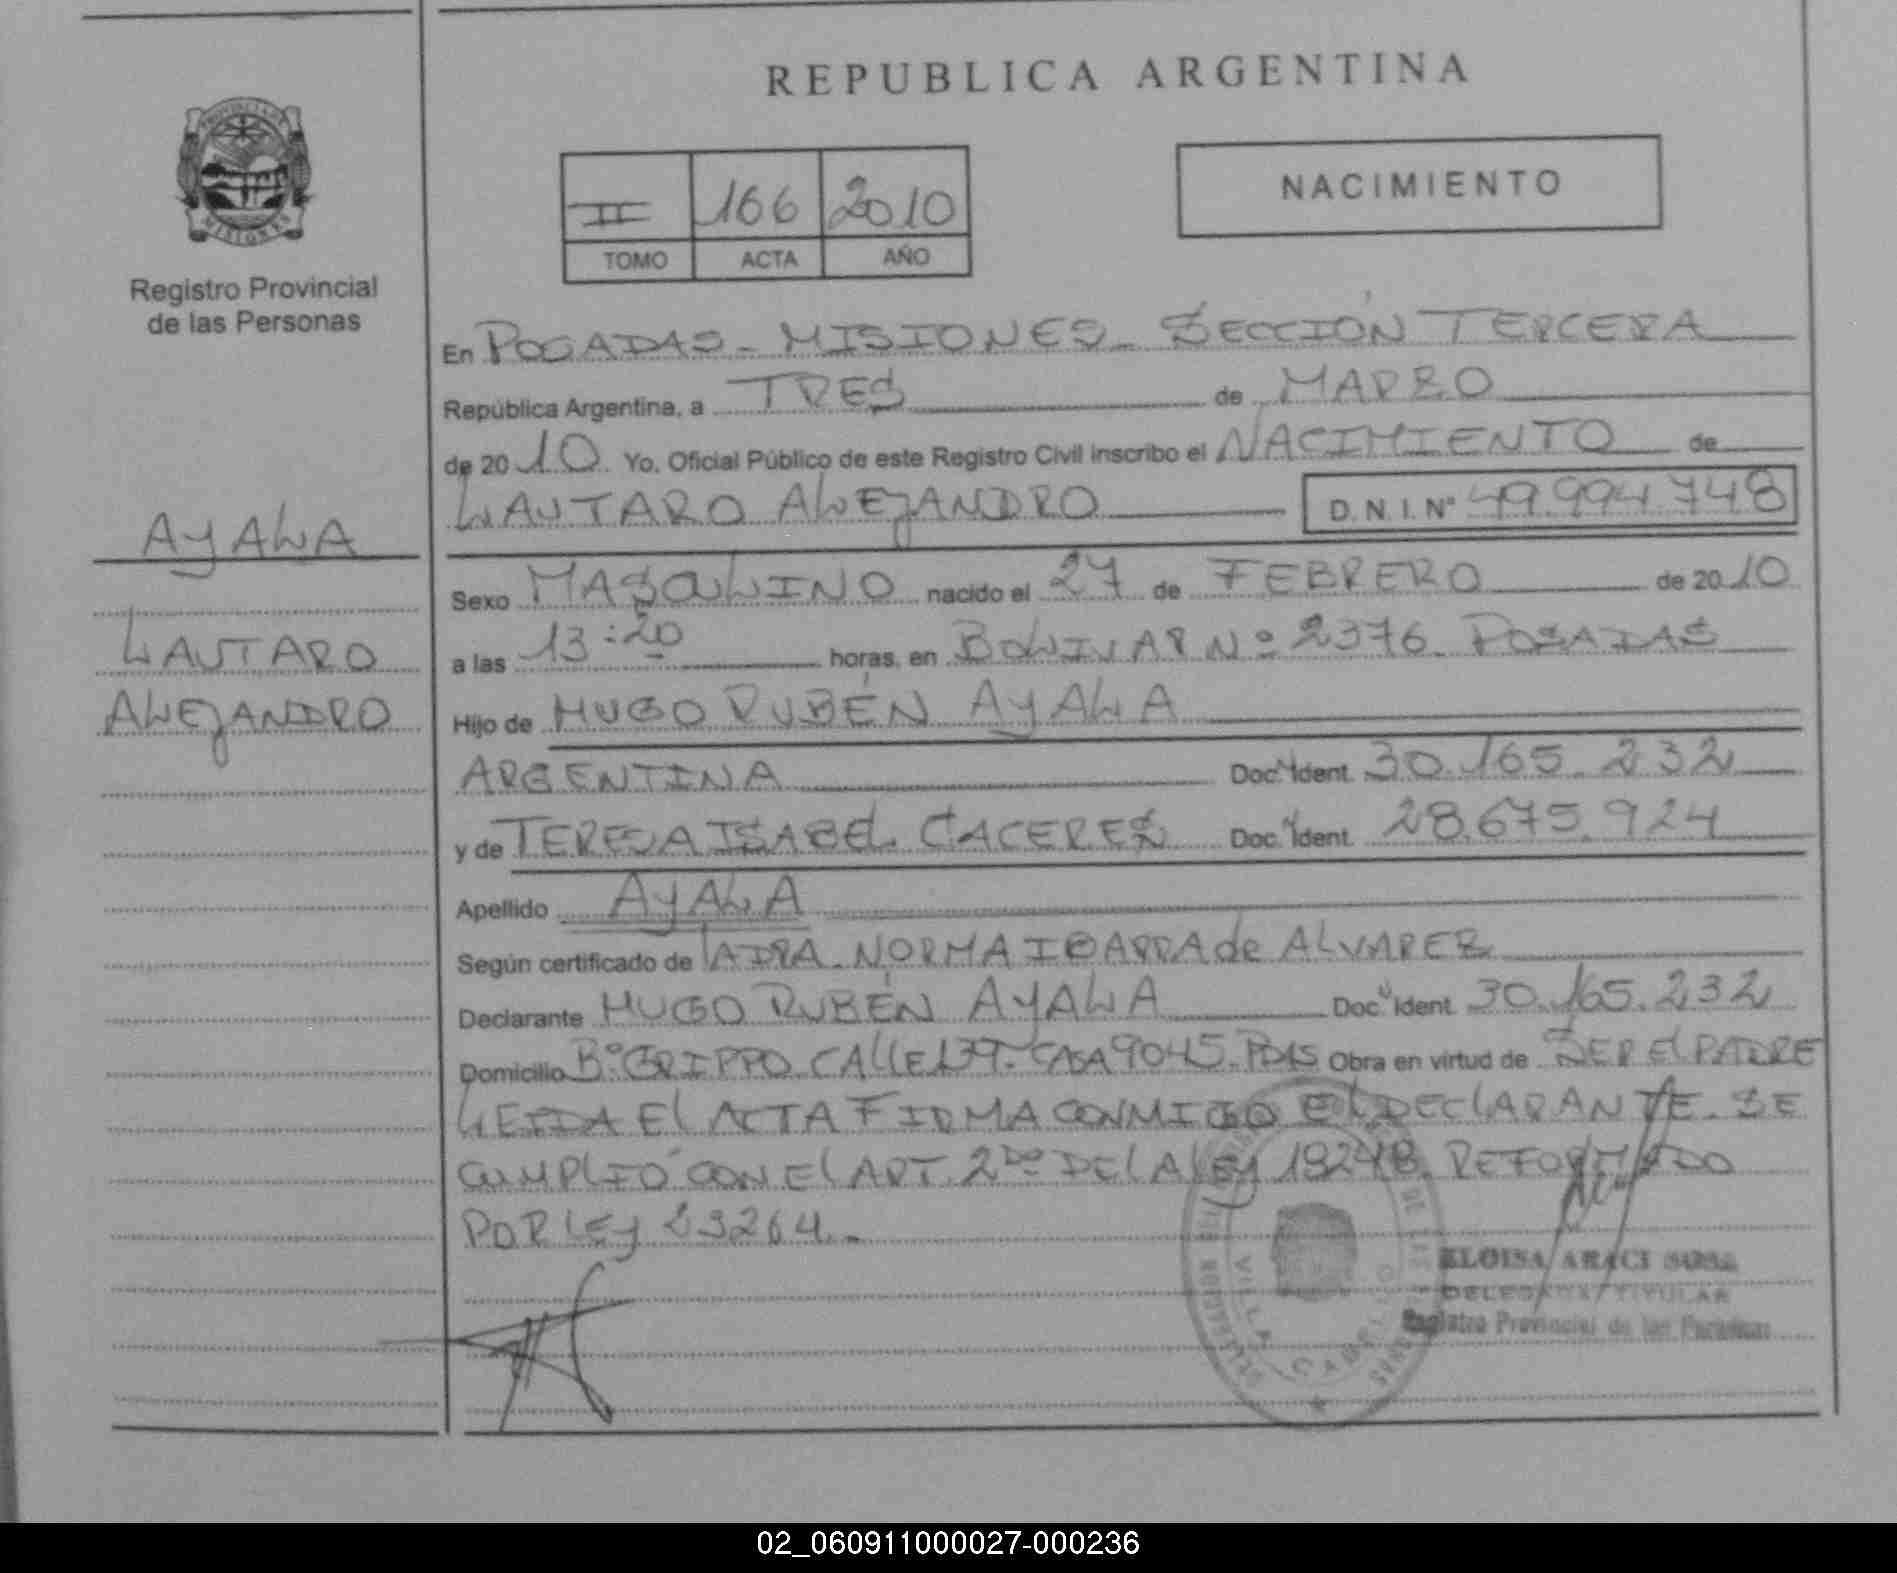 REPUBLICA ARGENTINA
PROVINCIA DE
MISIONES
Registro Provincial
de las Personas
II 166 2010
TOMO ACTA AÑO
NACIMIENTO
En POSADAS - MISIONES - SECCIÓN TERCERA
República Argentina, a TRES de MARZO
de 2010 Yo, Oficial Público de este Registro Civil inscribo el NACIMIENTO de
LAUTARO ALEJANDRO D.N.I. Nº 49.994.748
AYALA
LAUTARO
ALEJANDRO
Sexo MASCULINO nacido el 27 de FEBRERO de 2010
a las 13:20 horas, en BOLIVAR Nº 2376 POSADAS
Hijo de HUGO RUBÉN AYALA
ARGENTINA Doc. Ident. 30.165.232
y de TERESA ISABEL CACERES Doc. Ident. 28.675.924
Apellido AYALA
Según certificado de LA DRA. NORMA IBARRA de ALVAREZ
Declarante HUGO RUBÉN AYALA Doc. Ident. 30.165.232
Domicilio Bº GRIPPO CALLE 139 - CASA 9045. PDAS Obra en virtud de SER El PADRE
LEIDA El ACTA FIRMA CONMIGO El DEClARANTE. SE
CUMPLIÓ CON El ART. 2DO DE lA lEy 18248. REFORMADO
POR LEy 23264.-
ELOISA ARACI SOSA
DELEGADA TITULAR
Registro Provincial de las Personas
VILLA CABELLO
02_060911000027-000236